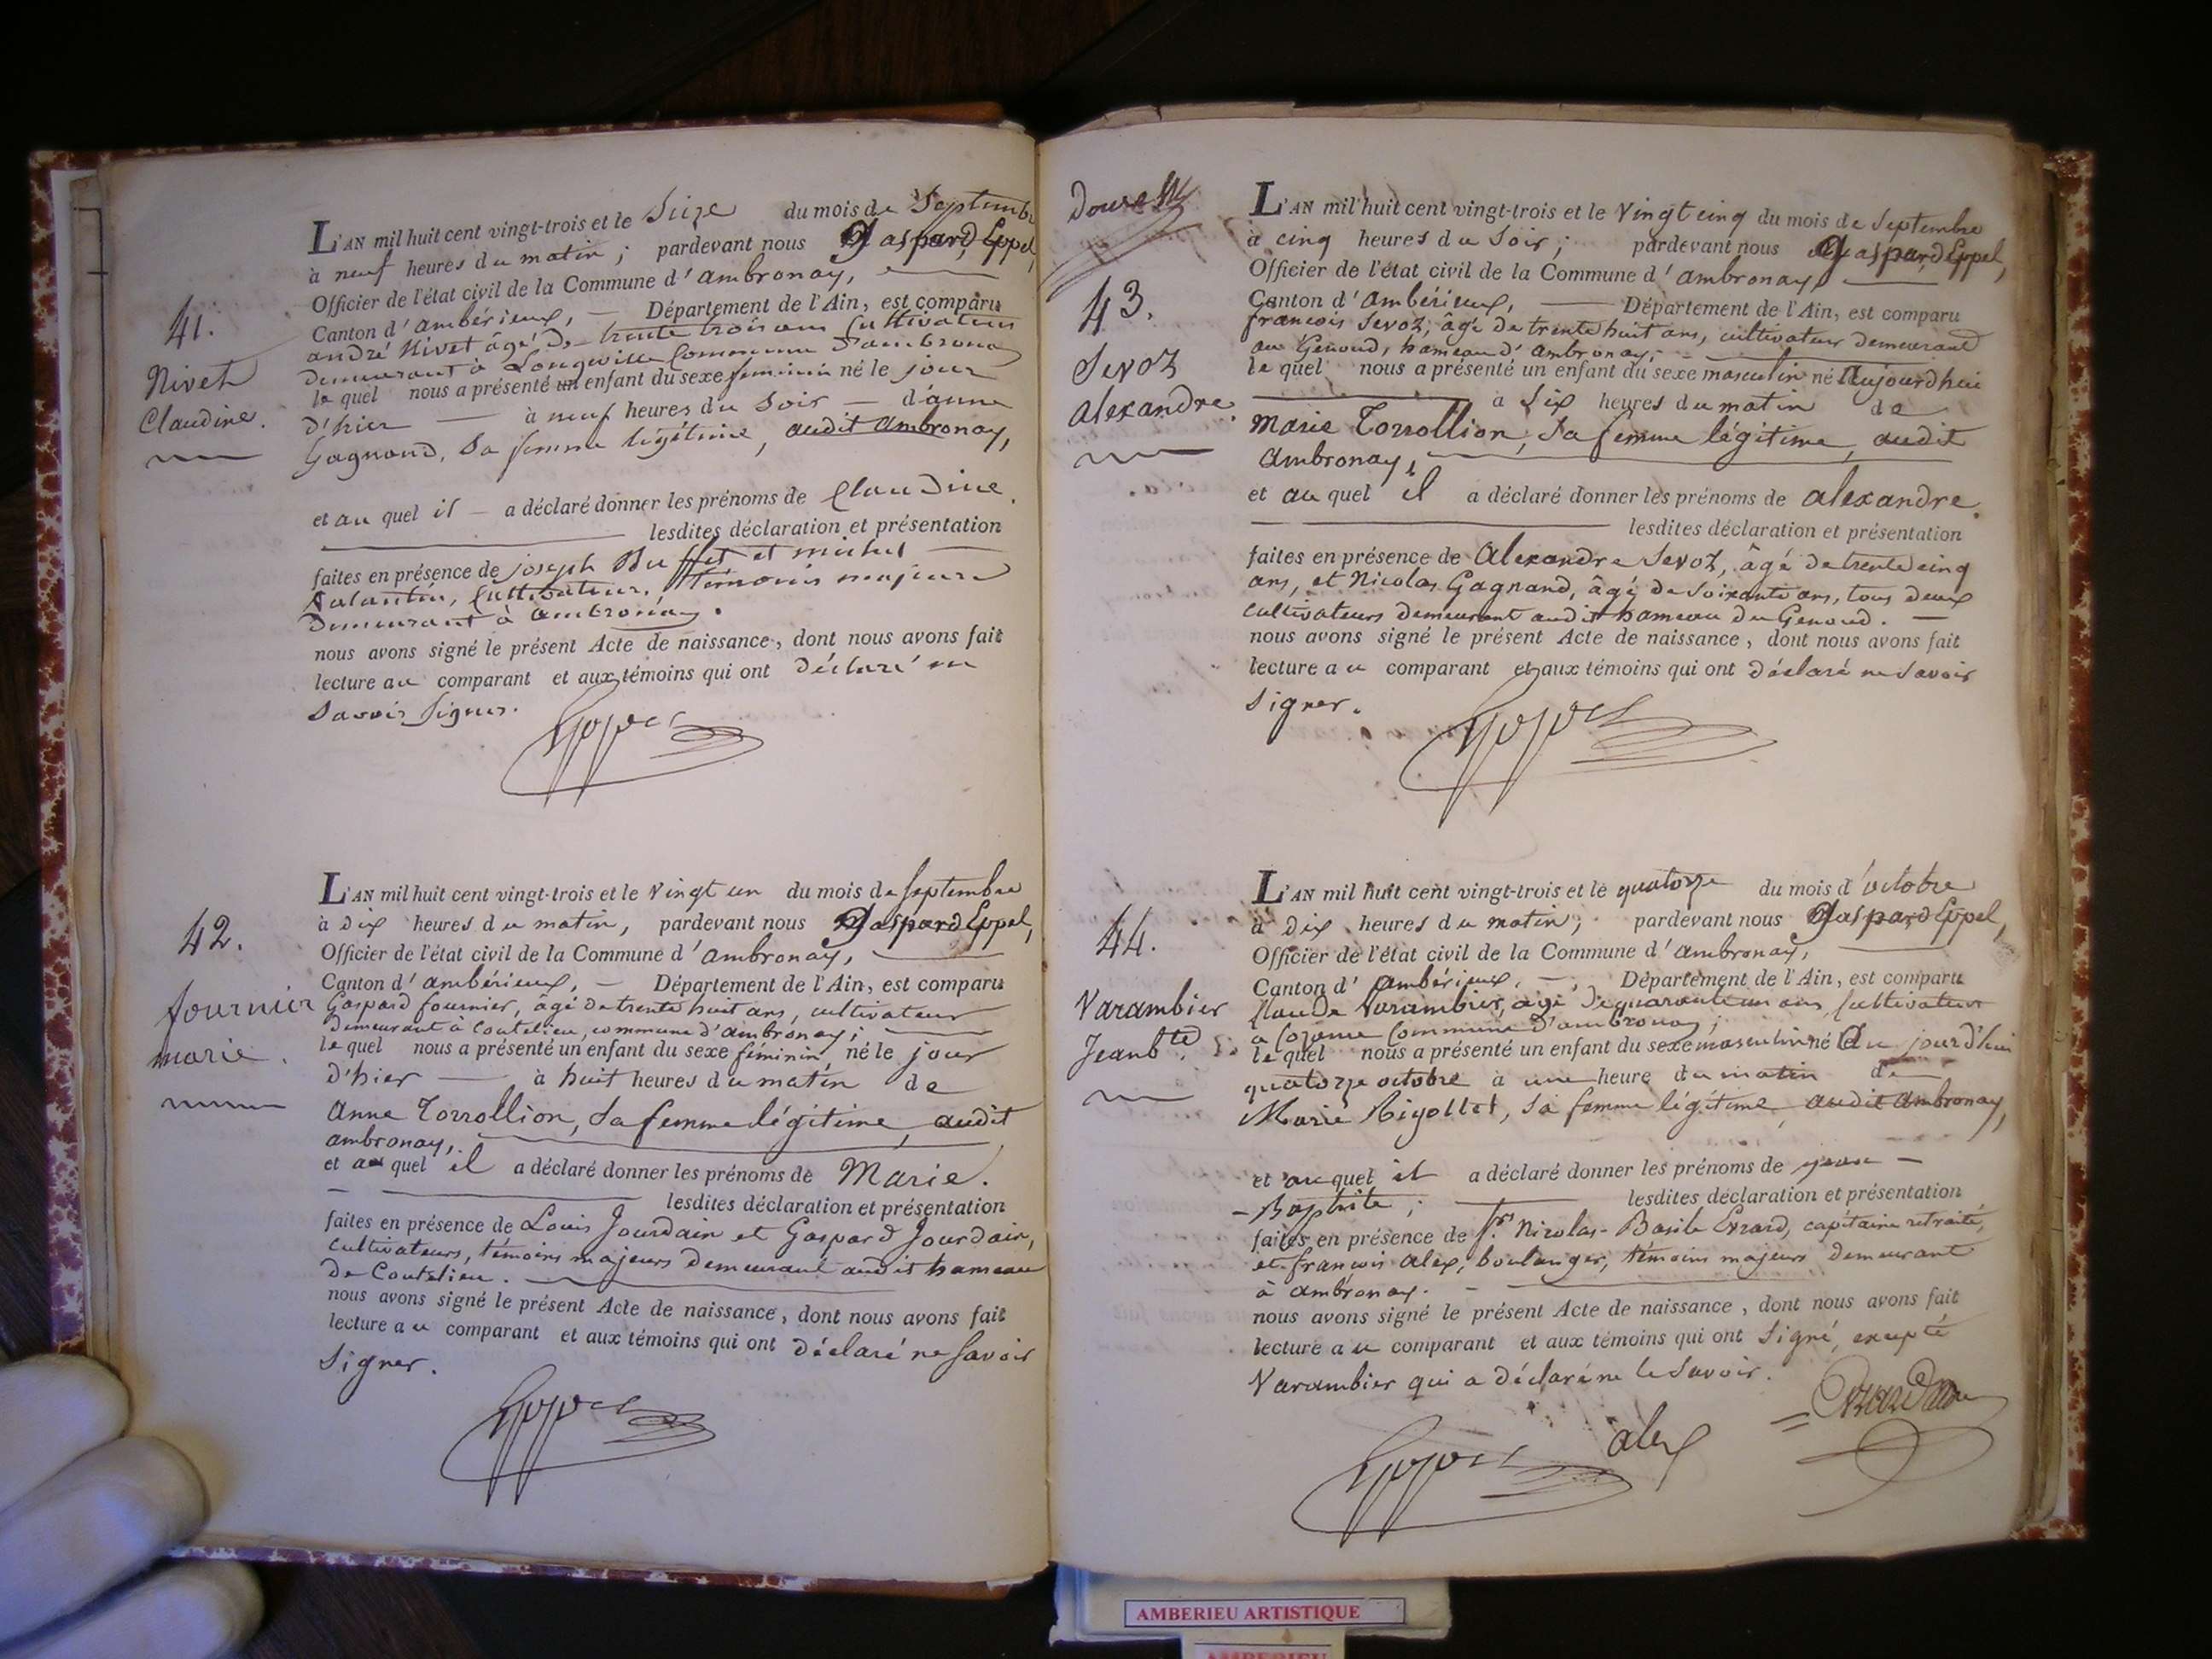 41.
Nivet
Claudine.
L'AN mil huit cent vingt-trois et le Seize du mois de Septembre
à neuf heures du matin ; pardevant nous Gaspard Eppel,
Officier de l'état civil de la Commune d'ambronay,
Canton d'ambérieux, Département de l'Ain, est comparu
andré Nivet âgé de trente trois ans Cultivateur
demeurant à Longeville Commune d'ambronay
le quel nous a présenté un enfant du sexe feminin né le jour
d'hier à neuf heures du Soir d'anne
Gagnand, Sa femme légitime, audit Ambronay,
et au quel il a déclaré donner les prénoms de Claudine.
lesdites déclaration et présentation
faites en présence de joseph Buffet et michel
Valantin, Cultivateurs, témoins majeurs
Demeurant à ambronay.
nous avons signé le présent Acte de naissance, dont nous avons fait
lecture au comparant et aux témoins qui ont déclaré ne
Savoir Signer.
Eppel
42.
fournier
marie.
L'AN mil huit cent vingt-trois et le Vingt un du mois de septembre
à dix heures du matin, pardevant nous Gaspard Eppel,
Officier de l'état civil de la Commune d'ambronay,
Canton d'ambérieux, Département de l'Ain, est comparu
Gaspard fournier, âgé de trente huit ans, cultivateur
Demeurant à Coutelieu, commune d'ambronay ;
le quel nous a présenté un enfant du sexe féminin né le jour
d'hier à huit heures du matin de
Anne Torrollion, Sa femme légitime, audit
ambronay,
et au quel il a déclaré donner les prénoms de Marie.
lesdites déclaration et présentation
faites en présence de Louis Jourdain et Gaspard Jourdain,
cultivateurs, témoins majeurs Demeurant audit hameau
de Coutelieu.
nous avons signé le présent Acte de naissance, dont nous avons fait
lecture au comparant et aux témoins qui ont déclaré ne Savoir
Signer.
Eppel
43.
Sevoz
Alexandre.
L'AN mil huit cent vingt-trois et le Vingt cinq du mois de Septembre
à cinq heures du Soir ; pardevant nous Gaspard Eppel,
Officier de l'état civil de la Commune d'ambronay
Canton d'Ambérieux, Département de l'Ain, est comparu
francois Sevoz, âgé de trente huit ans, cultivateur demeurant
au Genoud, hameau d'ambronay ;
le quel nous a présenté un enfant du sexe masculin né Aujourdhui
à Six heures du matin de
Marie Torrollion, Sa femme légitime, audit
Ambronay,
et au quel il a déclaré donner les prénoms de alexandre.
lesdites déclaration et présentation
faites en présence de Alexandre Sevoz, âgé de trente cinq
ans, et Nicolas Gagnand, âgé de Soixante ans, tous deux
cultivateurs Demeurant audit hameau du Genoud.
nous avons signé le présent Acte de naissance, dont nous avons fait
lecture au comparant et aux témoins qui ont déclaré ne Savoir
Signer.
Eppel
44.
Varambier
Jean bte
L'AN mil huit cent vingt-trois et le quatorze du mois d'octobre
à dix heures du matin ; pardevant nous Gaspard Eppel,
Officier de l'état civil de la Commune d'ambronay,
Canton d'Ambérieux, Département de l'Ain, est comparu
Claude Varambier, âgé de quarante un ans, Cultivateur
a Commune d'ambronay ;
le quel nous a présenté un enfant du sexe masculin né au jourd'hui
quatorze octobre à une heure du matin de
Marie Rigollet, Sa femme légitime, audit Ambronay,
et au quel il a déclaré donner les prénoms de jean
-Baptiste ; lesdites déclaration et présentation
faites en présence de Srs Nicolas-Basile Evrard, capitaine retraité,
et françois alex, boulanger, témoins majeurs Demeurant
à ambronay.
nous avons signé le présent Acte de naissance, dont nous avons fait
lecture au comparant et aux témoins qui ont Signé, excepté
Varambier qui a déclaré ne le Savoir.
Eppel alex
AMBERIEU ARTISTIQUE
AMBERIEU